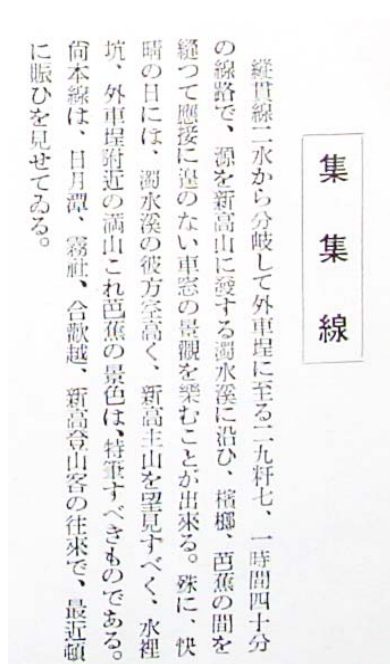 集集線
縱貫線二水から分岐して外車埕に至る二九粁七、一時間四十分
の線路で、源を新高山に發する濁水溪に沿ひ、檳榔、芭蕉の間を
縫つて應接に遑のない車窓の景觀を樂むことが出來る。殊に、快
晴の日には、濁水溪の彼方空高く、新高主山を望見すべく、水裡
坑、外車埕附近の滿山これ芭蕉の景色は、特筆すべきものである。
尙本線は、日月潭、霧社、合歡越、新高登山客の往來で、最近頓
に賑ひを見せてゐる。